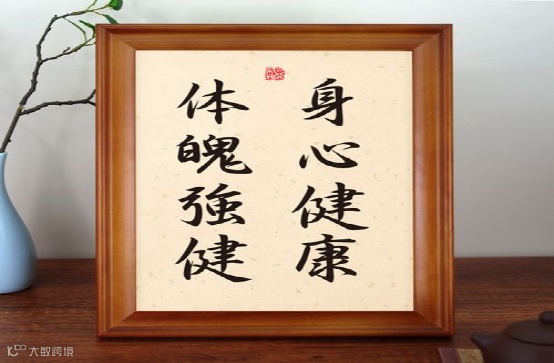 身心健康
体魄強健
大数跨境